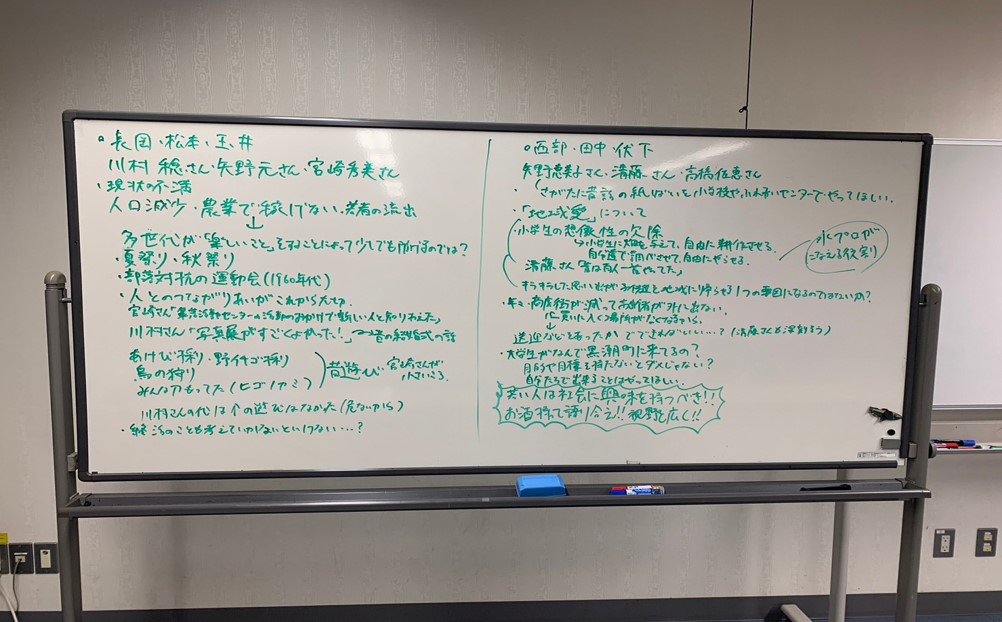 ・長岡・松本・玉井
川村 稔さん・矢野元さん・宮崎秀美さん
・現状の不満
人口減少・農業で稼げない・若者の流出
↓
多世代が「楽しいこと」をすることによって少しでも防げるのでは?
・夏祭り・秋祭り
・部落対抗の運動会(1960年代)
・人とのつながりあいがこれから大切
宮崎さん「集落活動センターの活動のおかげで新しい人と知りあえた」
川村さん「写真展がすごくよかった!」→昔の結婚式の話
あけび採り・野イチゴ採り
鳥の狩り
みんな力もってた(ヒゴノカミ)
昔遊び・宮崎さんが小さいころ
川村さんの代は個の遊びはなかった(危ないから)
・終活のことも考えていかないといけない…?
○西部・田中・伏下
矢野恵美子さん・斎藤さん・高橋佐恵さん
・さがたに昔話の紙しばいを小学校やふれあいセンターでやってほしい.
・「地域愛」について
・小学生の想像性の欠除
→小学生に畑を与えて、自由に耕作させる.
自分達で調べさせて、自由にやらせる.
斎藤さん「昔は百人一首やってた」
水プロが
になえる役割
キラキラした思い出が子供達を地域に帰らせる1つの要因になるのではないか?
・商店街が減って高齢者が外に出ない.
買いに入く場所がなくなるから.
↓
送迎などとあったかでできればいい…?(斎藤さんも深刻そう)
・大学生がなんで黒潮町に来てるの?
目的や目標を持たないとダメじゃない?
自分たちで出来ることはやってほしい.
若い人は社会に興味を持つべき!!
お酒持って語り合え!!視野を広く!!